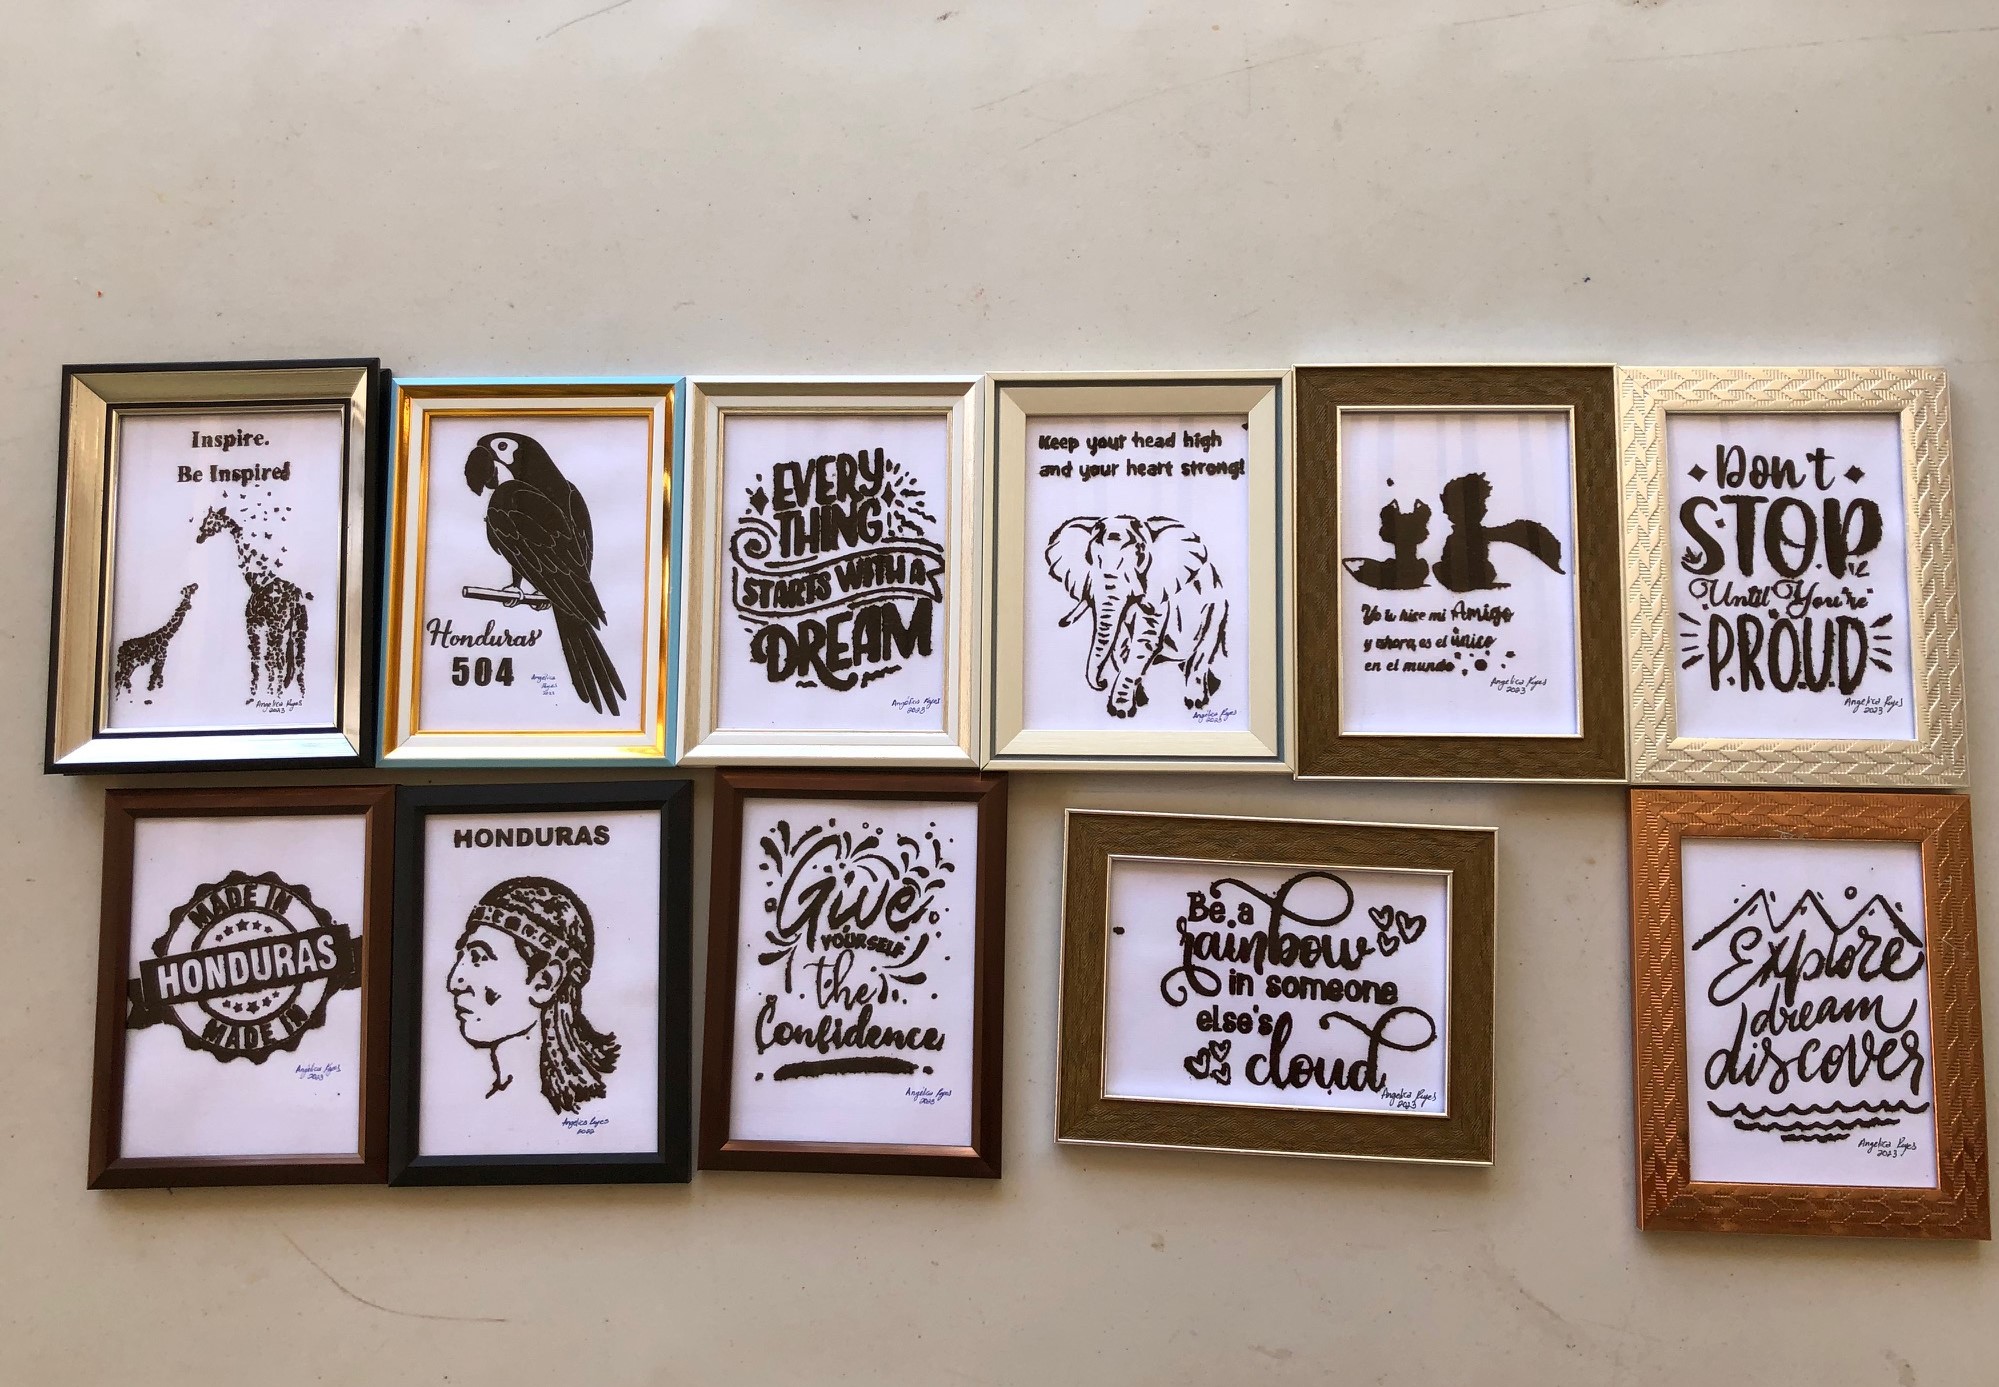 Inspire.
Be Inspired
Angelica Reyes
2023
Honduras
504
Angelica
Reyes
2023
EVERY
THING
STARTS WITH A
DREAM
Angelica Reyes
2023
Keep your head high
and your heart strong!
Angelica Reyes
2023
Yo lo hice mi Amigo
y ahora es el único
en el mundo
Angelica Reyes
2023
Don't
STOP
Until You're
PROUD
Angelica Reyes
2023
MADE IN
HONDURAS
MADE IN
Angelica Reyes
2023
HONDURAS
Angelica Reyes
2022
Give
YOURSELF
the
Confidence
Angelica Reyes
2023
Be a
rainbow
in someone
else's
cloud
Angelica Reyes
2023
Explore
dream
discover
Angelica Reyes
2023